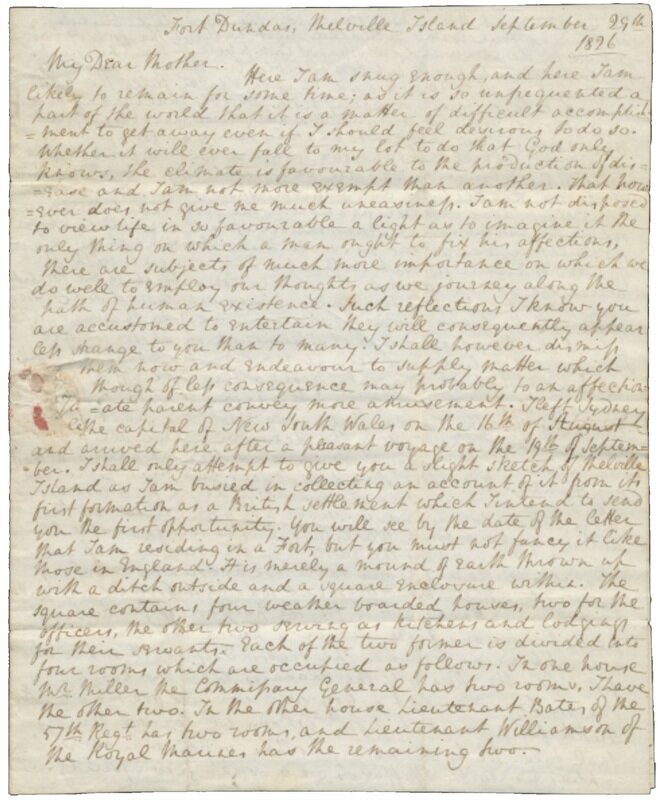 Fort Dundas, Melville Island September 29th
1826
My Dear Mother.
Here I am snug enough, and here I am
likely to remain for some time; as it is so unfrequented a
part of the world that it is a matter of difficult accomplish
=ment to get away even if I should feel desirous to do so.
Whether it will ever fall to my lot to do that God only
knows, the climate is favourable to the production of dis=
=ease and I am not more exempt than another. That how
=ever does not give me much uneasiness. I am not disposed
to view life in so favourable a light as to imagine it the
only thing on which a man ought to fix his affections,
there are subjects of much more importance on which we
do well to employ our thoughts as we journey along the
path of human existence. Such reflections I know you
are accustomed to entertain they will consequently appear
less strange to you than to many. I shall however dismiss
them now and endeavour to supply matter which
though of less consequence may probably to an affection
=ate parent convey more amusement. I left Sydney
the capital of New South Wales on the 16th of August
and arrived here after a pleasant voyage on the 19th of Septem=
ber. I shall only attempt to give you a slight sketch of Melville
Island as I am busied in collecting an account of it from its
first formation as a British settlement which I intend to send
you the first opportunity. You will see by the date of the letter
that I am residing in a Fort, but you must not fancy it like
those in England. It is merely a mound of Earth thrown up
with a ditch outside and a square enclosure within. The
square contains four weather boarded houses, two for the
officers, the other two serving as kitchens and lodgings
for their servants. Each of the two former is divided into
four rooms which are occupied as follows. In one house
Mr. Miller the Commissary General has two rooms, I have
the other two. In the other house Lieutenant Bates of the
57th Regt. has two rooms, and Lieutenant Williamson of
the Royal Marines has the remaining two.